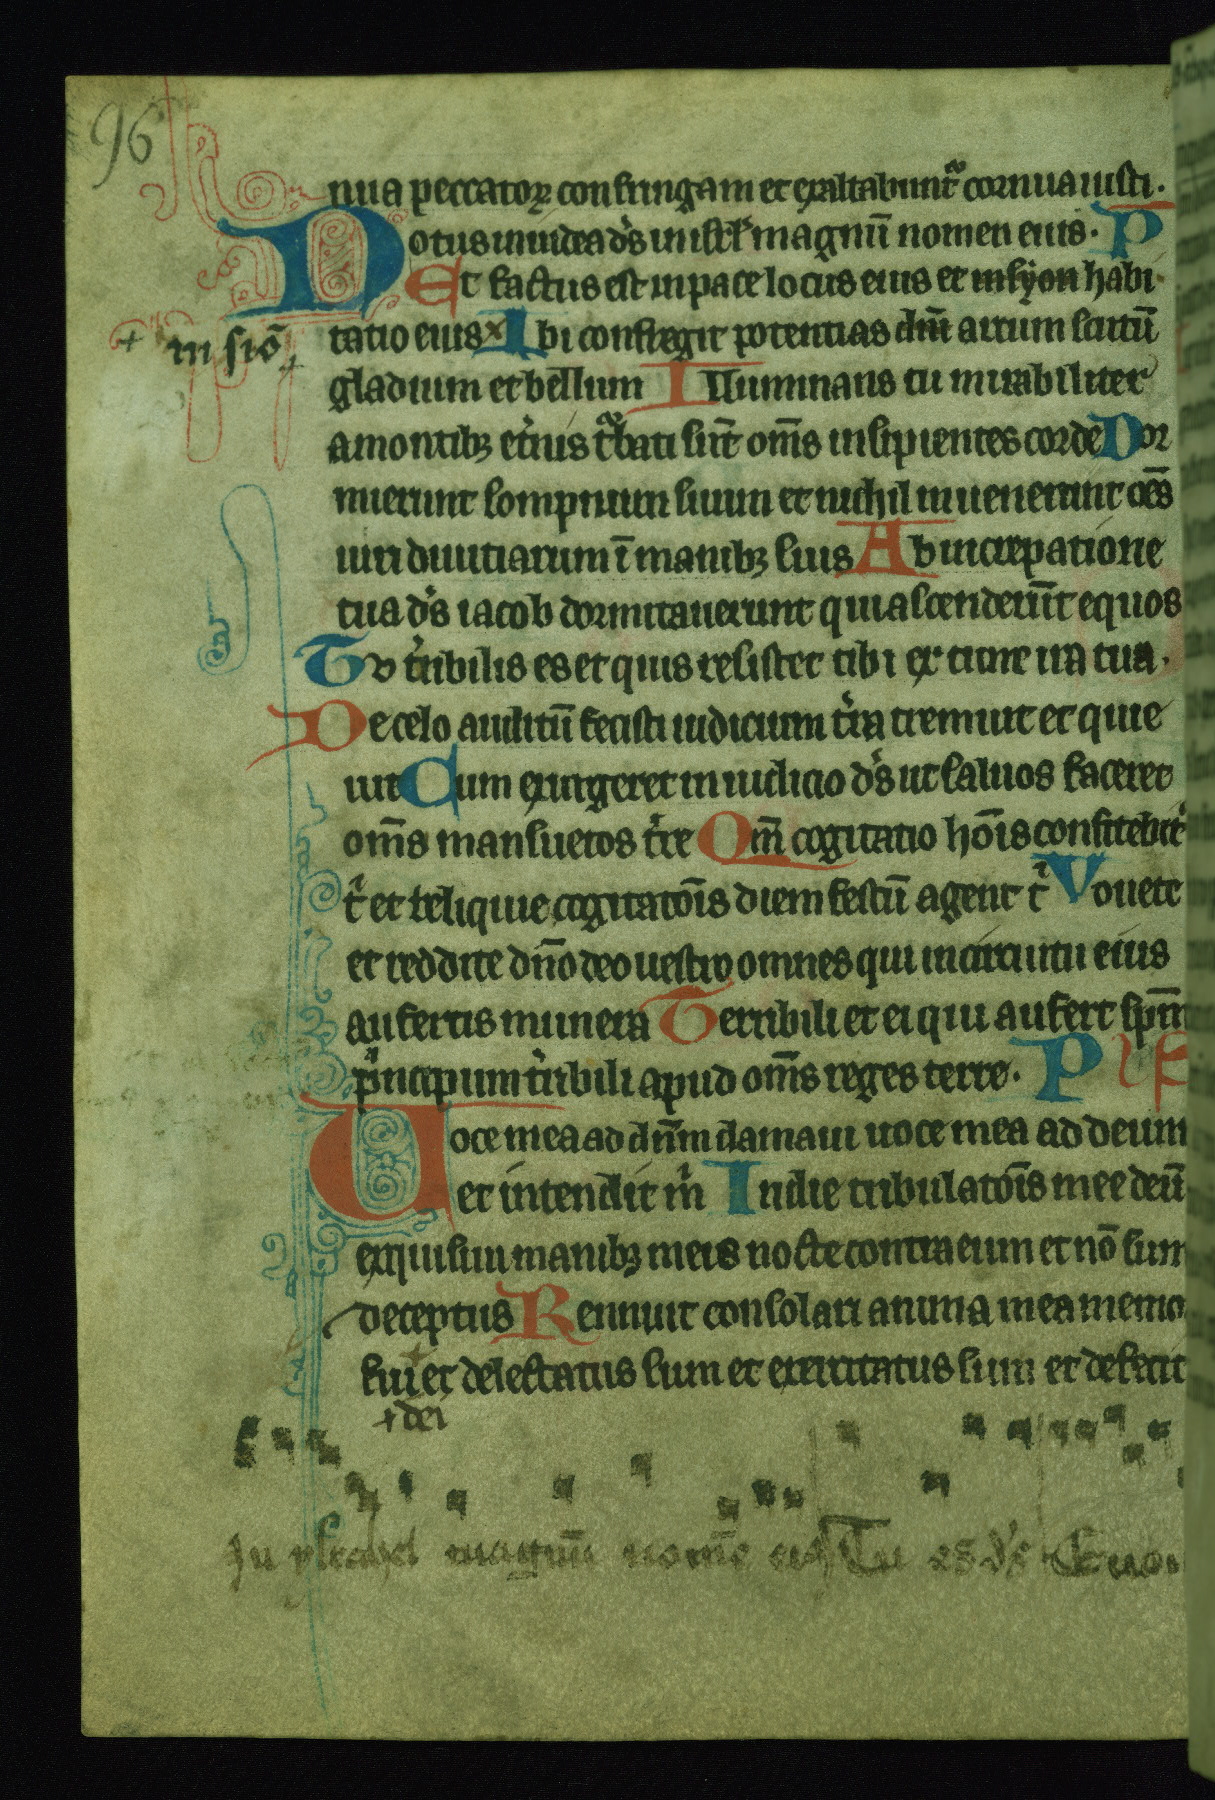 96
nua peccatoꝝ confringam et exaltabunt᷑ cornua iusti.
Notus in iudea d̄s in isrl̄ magnū nomen eius. P
Et factus est in pace locus eius et in syon habi
tatio eius Ibi confregit potentias arcum scutū
+ in siō +
gladium et bellum Illuminans tu mirabiliter
a montibꝫ et̓nis t᷑bati sūt om̄s insipientes corde Dor
mierunt sompnum suum et nichil inuenerunt om̄s
uiri diuitiarum ī manibꝫ suis Ab increpatione
tua d̄s iacob dormitauerunt qui ascenderūt equos
Tu t̓ribilis es et quis resistet tibi ex tunc ira tua.
De celo auditū fecisti iudicium t̓ra tremuit et quie
uit Cum exurgeret in iudicio d̄s ut saluos faceret
om̄s mansuetos t̓re Qm̄ cogitatio hōis confitebit̓
t̓ et reliquie cogitatōis diem festū agent t̓ Vouete
et reddite dn̄o deo uestro omnes qui in circuitu eius
affertis munera Terribili et ei qui aufert spm̄
p̓ncipum t̓ribili apud om̄s reges terre. P s
Uoce mea ad dn̄m clamaui uoce mea ad deum
et intendit m̓ In die tribulatōis mee deū
exquisiui manibꝫ meis nocte contra eum et nō sum
deceptus Rennuit consolari anima mea memo
fui + et delectatus sum et exercitatus sum et defecit
+ dei
In ysrahel magnū nomē Tu es d̓s Euo.